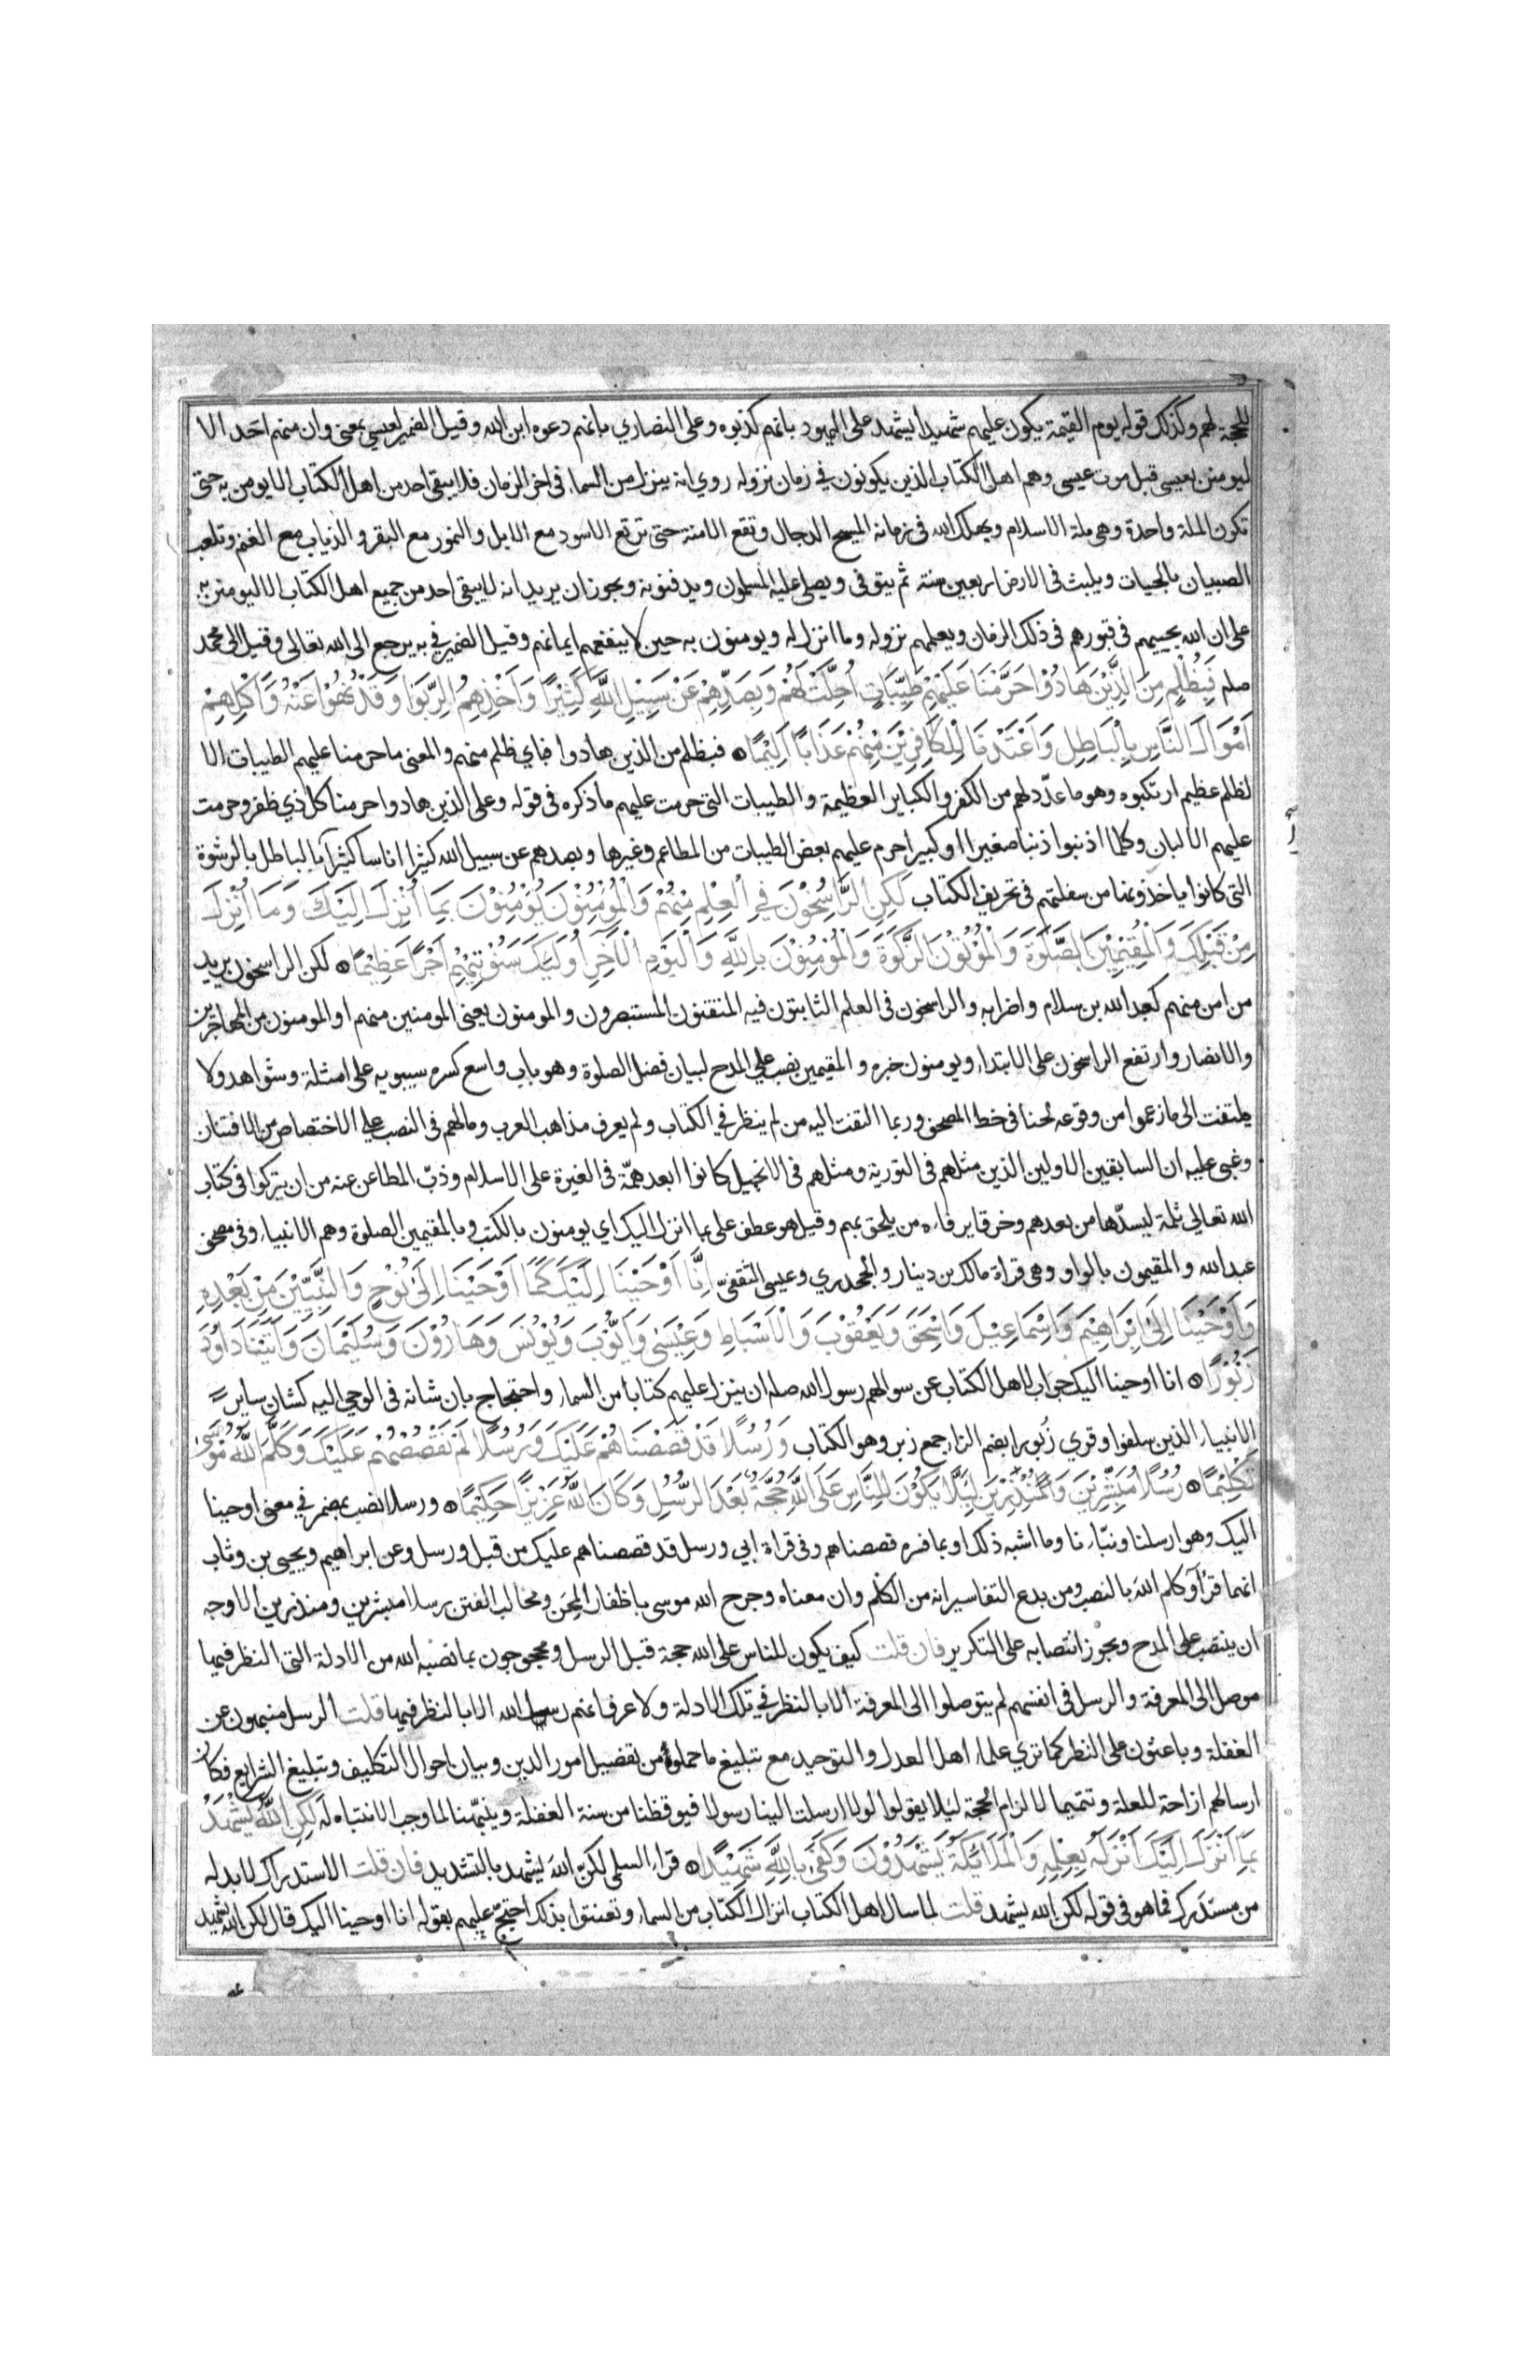 للحجة لهم وكذلك قوله يوم القيمة يكون عليهم شهيدا يشهد على اليهود بانهم كذبوه وعلى النصاري بانهم دعوه ابن الله وقيل الضمير لعيسى بمعنى وان منهم احد الا
ليومنن بعيسى قبل موت عيسى وهم اهل الكتاب الذين يكونون في زمان نزوله روي انه ينزل من السماء في اخر الزمان فلا يبقى احد من اهل الكتاب الا يومن به حتى
تكون الملة واحدة وهي ملة الاسلام ويهلك الله في زمانه المسيح الدجال وتقع الامنة حتى ترتع الاسود مع الابل والنمور مع البقر والذياب مع الغنم وتلعب
الصبيان بالحيات ويلبث في الارض اربعين سنة ثم يتوفى ويصلي عليه المسلمون ويدفنونه ويجوز ان يريد انه لا يبقى احد من جميع اهل الكتاب الا ليومنن به
على ان الله يحييهم في قبورهم في ذلك الزمان ويعلمهم نزوله وما انزل له ويومنون به حين لا ينفعهم ايمانهم وقيل الضمير في به يرجع الى الله تعالى وقيل الى محمد
صلم فَبِظُلْمٍ مِنَ الَّذِيْنَ هَادُوْا حَرَّمْنَا عَلَيْهِمْ طَيِّبَاتٍ اُحِلَّتْ لَهُمْ وَبِصَدِّهِمْ عَنْ سَبِيْلِ اللَّهِ كَثِيْرًا وَاَخْذِهِمُ الرِّبَوا وَقَدْ نُهُوْا عَنْهُ وَاَكْلِهِمْ
اَمْوَالَ النَّاسِ بِالْبَاطِلِ وَاَعْتَدْنَا لِلْكَافِرِيْنَ مِنْهُمْ عَذَابًا اَلِيْمًا ه فبظلم من الذين هادوا فباي ظلم منهم والمعنى ما حرمنا عليهم الطيبات الا
لظلم عظيم ارتكبوه وهو ما عدّد لهم من الكفر والكباير العظيمة والطيبات التي حرمت عليهم ما ذكره في قوله وعلى الذين هادوا حرمنا كل ذي ظفر وحرمت
عليهم الالبان وكلما اذنبوا ذنبا صغيرا او كبيرا حرم عليهم بعض الطيبات من المطاعم وغيرها وبصدهم عن سبيل الله كثيرا اناسا كثيرا بالباطل بالرشوة
التي كانوا ياخذونها من سفلتهم في تحريف الكتاب لَكِنِ الرَّاسِخُوْنَ فِي الْعِلْمِ مِنْهُمْ وَالْمُؤْمِنُوْنَ يُؤْمِنُوْنَ بِمَا اُنْزِلَ اِلَيْكَ وَمَا اُنْزِلَ
مِنْ قَبْلِكَ وَالْمُقِيْمِيْنَ الصَّلَوةَ وَالْمُؤْتُوْنَ الزَّكَوةَ وَالْمُؤْمِنُوْنَ بِاللَّهِ وَالْيَوْمِ الْاَخِرِ اُولَئِكَ سَنُؤْتِيْهِمْ اَجْرًا عَظِيْمًا ه لكن الراسخون يريد
من امن منهم كعبد الله بن سلام واضرابه والراسخون في العلم الثابتون فيه المتقنون المستبصرون والمومنون يعني المومنين منهم او المومنون من المهاجرين
والانصار وارتفع الراسخون على الابتداء ويومنون خبره والمقيمين نصب على المدح لبيان فضل الصلوة وهو باب واسع كسره سيبويه على امثلة وشواهد ولا
يلتفت الى ما زعموا من وقوعه لحنا في خط المصحف وربما التفت اليه من لم ينظر في الكتاب ولم يعرف مذاهب العرب وما لهم في النصب على الاختصاص من الافتنان
وغبي عليه ان السابقين الاولين الذين مثلهم في التورية ومثلهم في الانجيل كانوا ابعد همّة في الغيرة على الاسلام وذبّ المطاعن عنه من ان يتركوا في كتاب
الله تعالى ثلمة ليسدّها من بعدهم وخرقا يرفاه من يلحق بهم وقيل هو عطف على بما انزل اليك اي يومنون بالكتب وبالمقيمين الصلوة وهم الانبياء وفي مصحف
عبد الله والمقيمون بالواو وهي قراة مالك بن دينار والجحدري وعيسى الثقفيّ اِنَّا اَوْحَيْنَا اِلَيْكَ كَمَا اَوْحَيْنَا اِلَى نُوْحٍ وَالنَّبِيِّيْنَ مِنْ بَعْدِهِ
وَاَوْحَيْنَا اِلَى اِبْرَاهِيْمَ وَاِسْمَاعِيْلَ وَاِسْحَقَ وَيَعْقُوْبَ وَالْاَسْبَاطِ وَعِيْسَى وَاَيُّوْبَ وَيُوْنُسَ وَهَارُوْنَ وَسُلَيْمَانَ وَاتَيْنَا دَاوُدَ
زَبُوْرًا ه انا اوحينا اليك جواب لاهل الكتاب عن سوالهم رسول الله صلم ان ينزل عليهم كتابا من السماء واحتجاج بان شانه في الوحي اليه كشان ساير
الانبياء الذين سلفوا وقري زُبورا بضم الزاء جمع زبر وهو الكتاب وَرُسُلًا قَدْ قَصَصْنَاهُمْ عَلَيْكَ وَرُسُلًا لَمْ نَقْصُصْهُمْ عَلَيْكَ وَكَلَّمَ اللَّهُ مُوْسَى
تَكْلِيْمًا ه رُسُلًا مُبَشِّرِيْنَ وَمُنْذِرِيْنَ لِئَلَّا يَكُوْنَ لِلنَّاسِ عَلَى اللَّهِ حُجَّةٌ بَعْدَ الرُّسُلِ وَكَانَ اللَّهُ عَزِيْزًا حَكِيْمًا ه ورسلا نصب بمضمر في معنى اوحينا
اليك وهو ارسلنا ونبّانا وما اشبه ذلك او بما فسره قصصناهم وفي قراة ابي ورسل قد قصصناهم عليك من قبل ورسل وعن ابراهيم ويحيى بن وثاب
انهما قرٱ وكلم اللهَ بالنصب ومن بدع التفاسير انه من الكلْم وان معناه وجرح الله موسى باظفار المِحَن ومخالب الفتن رسلا مبشرين ومنذرين الاوجه
ان ينتصب على المدح ويجوز انتصابه على التكرير فان قلت كيف يكون للناس على الله حجة قبل الرسل ومحجوجون بما نصبه الله من الادلة التي النظر فيها
موصل الى المعرفة والرسل في انفسهم لم يتوصلوا الى المعرفة الا بالنظر في تلك الادلة ولا عرف انهم رسل الله الا بالنظر فيها قلت الرسل منبهون عن
الغفلة وباعثون على النظر كما تري علماء اهل العدل والتوحيد مع تبليغ ما حملوه من تفصيل امور الدين وبيان احوال التكليف وتبليغ الشرايع فكان
ارسالهم ازاحة للعلة وتتميما لالزام الحجة ليلا يقولوا لولا ارسلت الينا رسولا فيوقظنا من سنة الغفلة وينبّهنا لما وجب الانتباه له لَكِنِ اللَّهُ يَشْهَدُ
بِمَا اَنْزَلَ اِلَيْكَ اَنْزَلَهُ بِعِلْمِهِ وَالْمَلَائِكَةُ يَشْهَدُوْنَ وَكَفَى بِاللَّهِ شَهِيْدًا ه قراء السلمي لكنّ اللهَ يشهد بالتشديد فان قلت الاستدراك لا بد له
من مستدَرك فما هو في قوله لكن الله يشهد قلت لما سال اهل الكتاب انزال الكتاب من السماء وتعنتوا بذلك احتجّ عليهم بقوله انا اوحينا اليك قال لكن الله يشهد